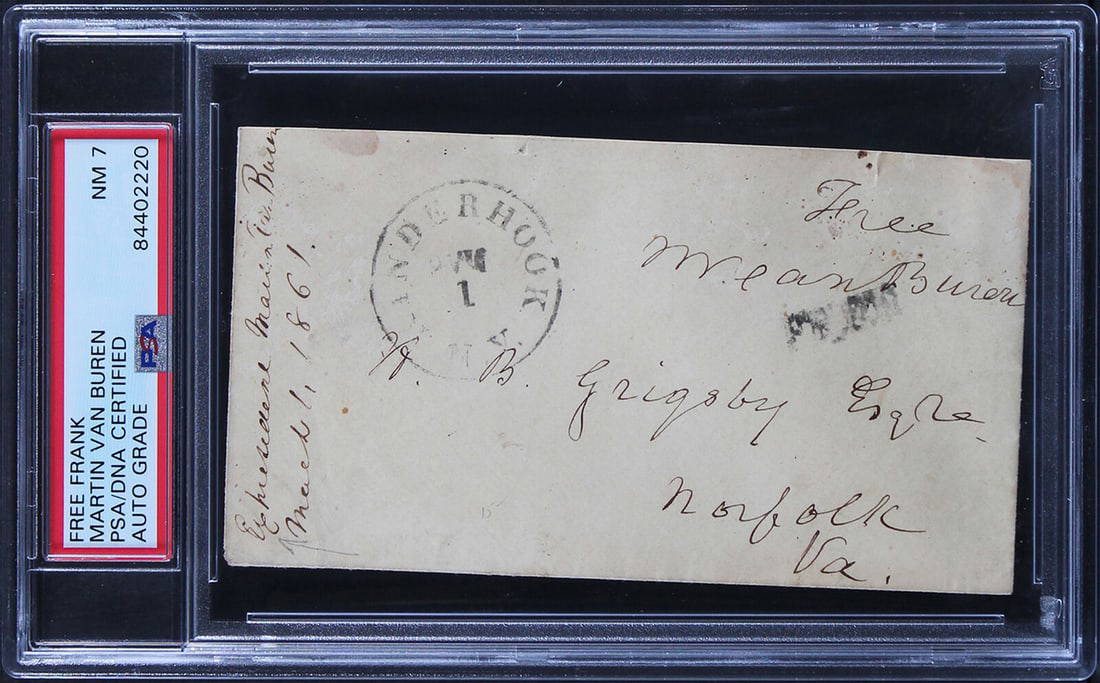 FREE FRANK
MARTIN VAN BUREN
PSA/DNA CERTIFIED
AUTO GRADE
NM 7
84402220
PSA
Expresident Martin Van Buren
March 1, 1861.
KINDERHOOK
1
N.Y.
Free
MVan Buren
H. B. Grigsby Esqre
Norfolk
Va.